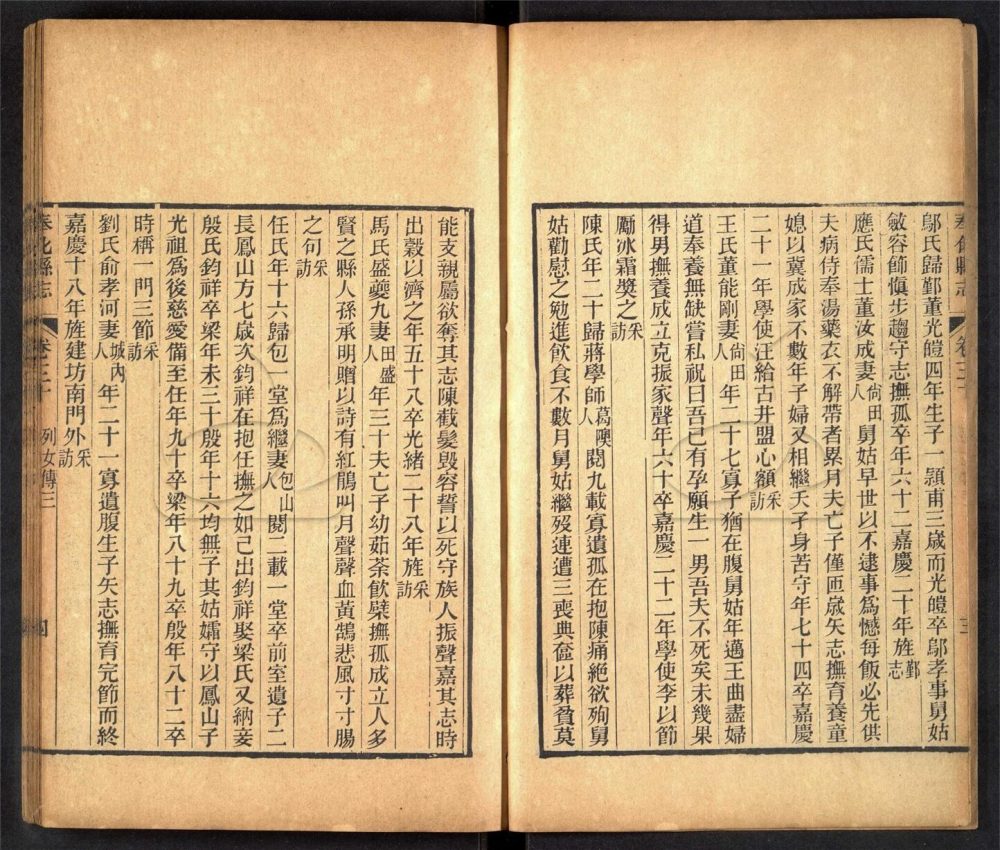 奉化縣志 卷三十 三
鄔氏歸鄞董光皚四年生子一顯甫三歲而光皚卒鄔孝事舅姑
敏容飾愼步趨守志撫孤卒年六十二嘉慶二十年旌鄞志
應氏儒士董汝成妻尙田人舅姑早世以不逮事爲憾每飯必先供
夫病侍奉湯藥衣不解帶者累月夫亡子僅匝歲矢志撫育養童
媳以冀成家不數年子婦又相繼夭孑身苦守年七十四卒嘉慶
二十一年學使汪給古井盟心額采訪
王氏董能剛妻尙田人年二十七寡子猶在腹舅姑年邁王曲盡婦
道奉養無缺嘗私祝曰吾已有孕願生一男吾夫不死矣未幾果
得男撫養成立克振家聲年六十卒嘉慶二十二年學使李以節
勵冰霜獎之采訪
陳氏年二十歸蔣學師葛隩人閱九載寡遺孤在抱陳痛絕欲殉舅
姑勸慰之勉進飮食不數月舅姑繼歿連遭三喪典奩以葬貧莫
能支親屬欲奪其志陳截髮毀容誓以死守族人振聲嘉其志時
出穀以濟之年五十八卒光緒二十八年旌采訪
馬氏盛夔九妻田盛人年三十夫亡子幼茹荼飮櫱撫孤成立人多
賢之縣人孫承明贈以詩有紅鵑叫月聲聲血黃鵠悲風寸寸腸
之句采訪
任氏年十六歸包一堂爲繼妻包山人閱二載一堂卒前室遺子二
長鳳山方七歲次鈞祥在抱任撫之如己出鈞祥娶梁氏又納妾
殷氏鈞祥卒梁年未三十殷年十六均無子其姑孀守以鳳山子
光祖爲後慈愛備至任年九十卒梁年八十九卒殷年八十二卒
時稱一門三節采訪
劉氏俞孝河妻城內人年二十一寡遺腹生子矢志撫育完節而終
嘉慶十八年旌建坊南門外采訪
奉化縣志 卷三十 列女傳三 四